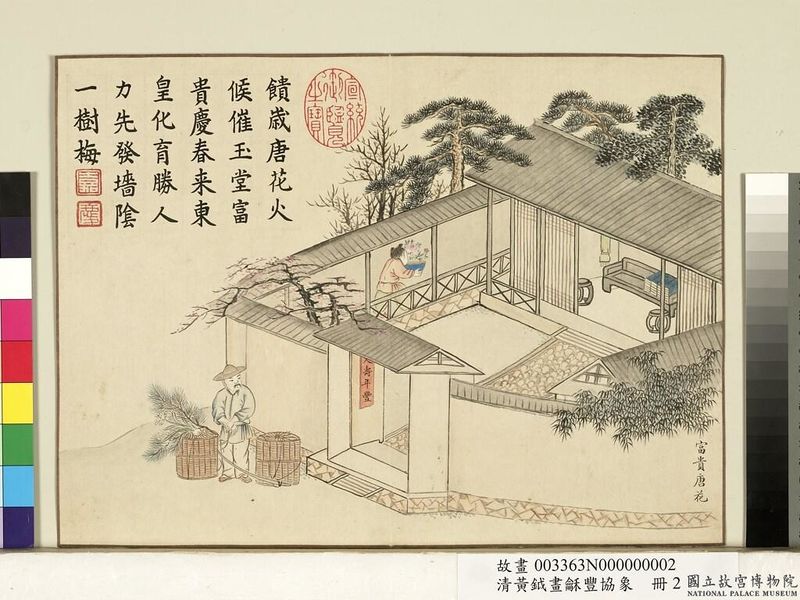 饋歲唐花火
候催玉堂富
貴慶春来東
皇化育勝人
力先發墻陰
一樹梅
宣統御覽之寶
壽年豐
富貴唐花
故畫 003363N000000002
清黃鉞畫龢豐協象 冊 2
國立故宮博物院
NATIONAL PALACE MUSEUM